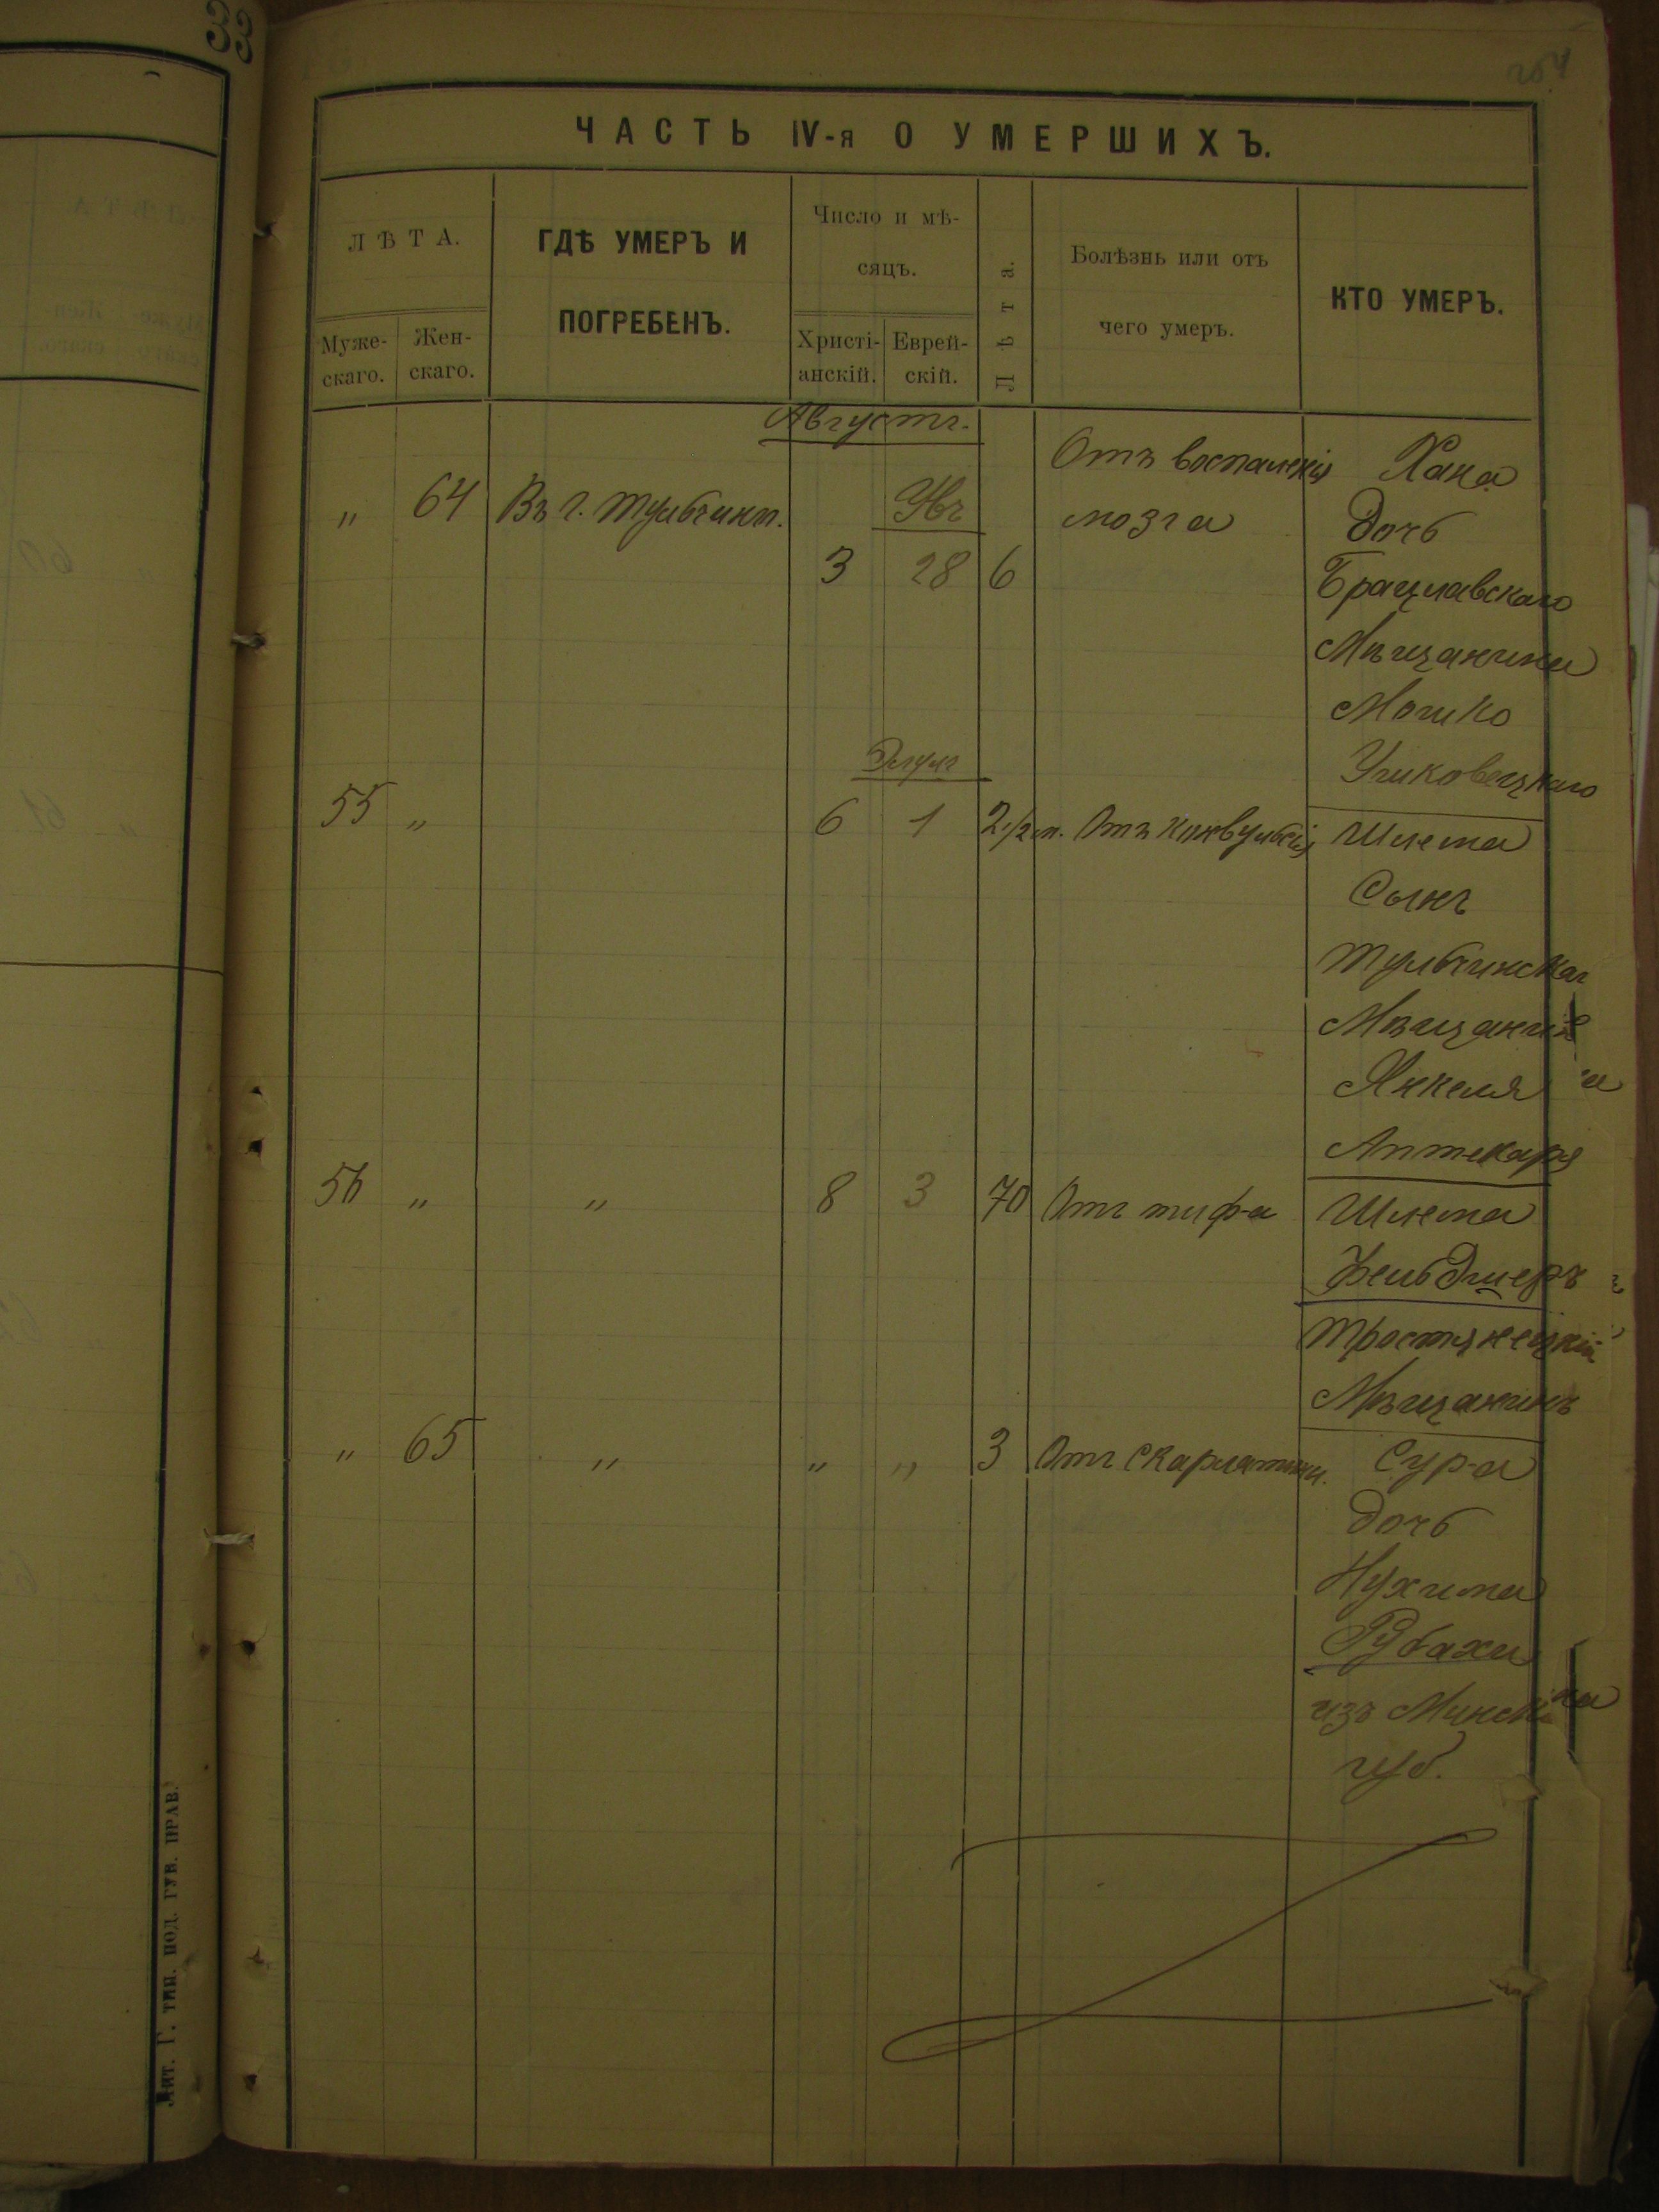 33
254
ЧАСТЬ IV-я О УМЕРШИХЪ.
ЛѢТА.
Муже-
скаго.
Жен-
скаго.
ГДѢ УМЕРЪ И
ПОГРЕБЕНЪ.
Число и мѣ-
сяцъ.
Христі-
анскій.
Еврей-
скій.
Лѣта.
Болѣзнь или отъ
чего умеръ.
КТО УМЕРЪ.
Августъ.
" 64 Въ г. Тульчинѣ. Увъ Отъ воспаленія Хана
мозга дочь
3 28 6 Брацлавскаго
Мѣщанина
Мошко
Элулъ
55 " 6 1 2 1/2 м. Отъ конвульсія Шлема
Сынъ
Тульчинскаг
Мѣщанин
а
Янкеля
Аптекаря
56 " " 8 3 70 Отъ тифа Шлема
Тростянецкій
Мѣщанинъ
" 65 " " " 3 Отъ скарлатины. Сура
дочь
Нухима
Рубахи
изъ Минска
губ.
Лит. Г. тип. под. губ. прав.